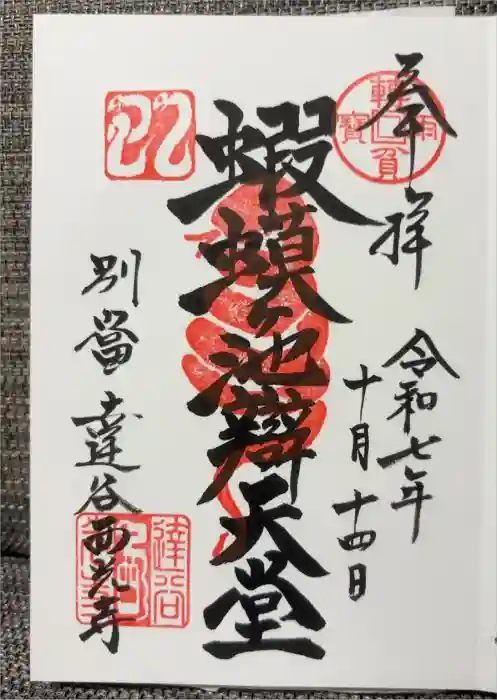 奉拝
令和七年
十月十四日
蝦蟆ヶ池辯天堂
別當 達谷西光寺